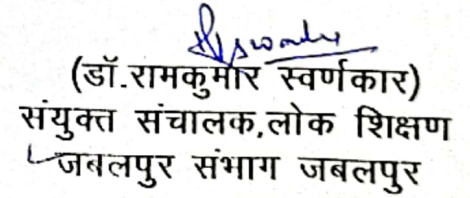 (डॉ.रामकुमार स्वर्णकार)
संयुक्त संचालक,लोक शिक्षण
जबलपुर संभाग जबलपुर